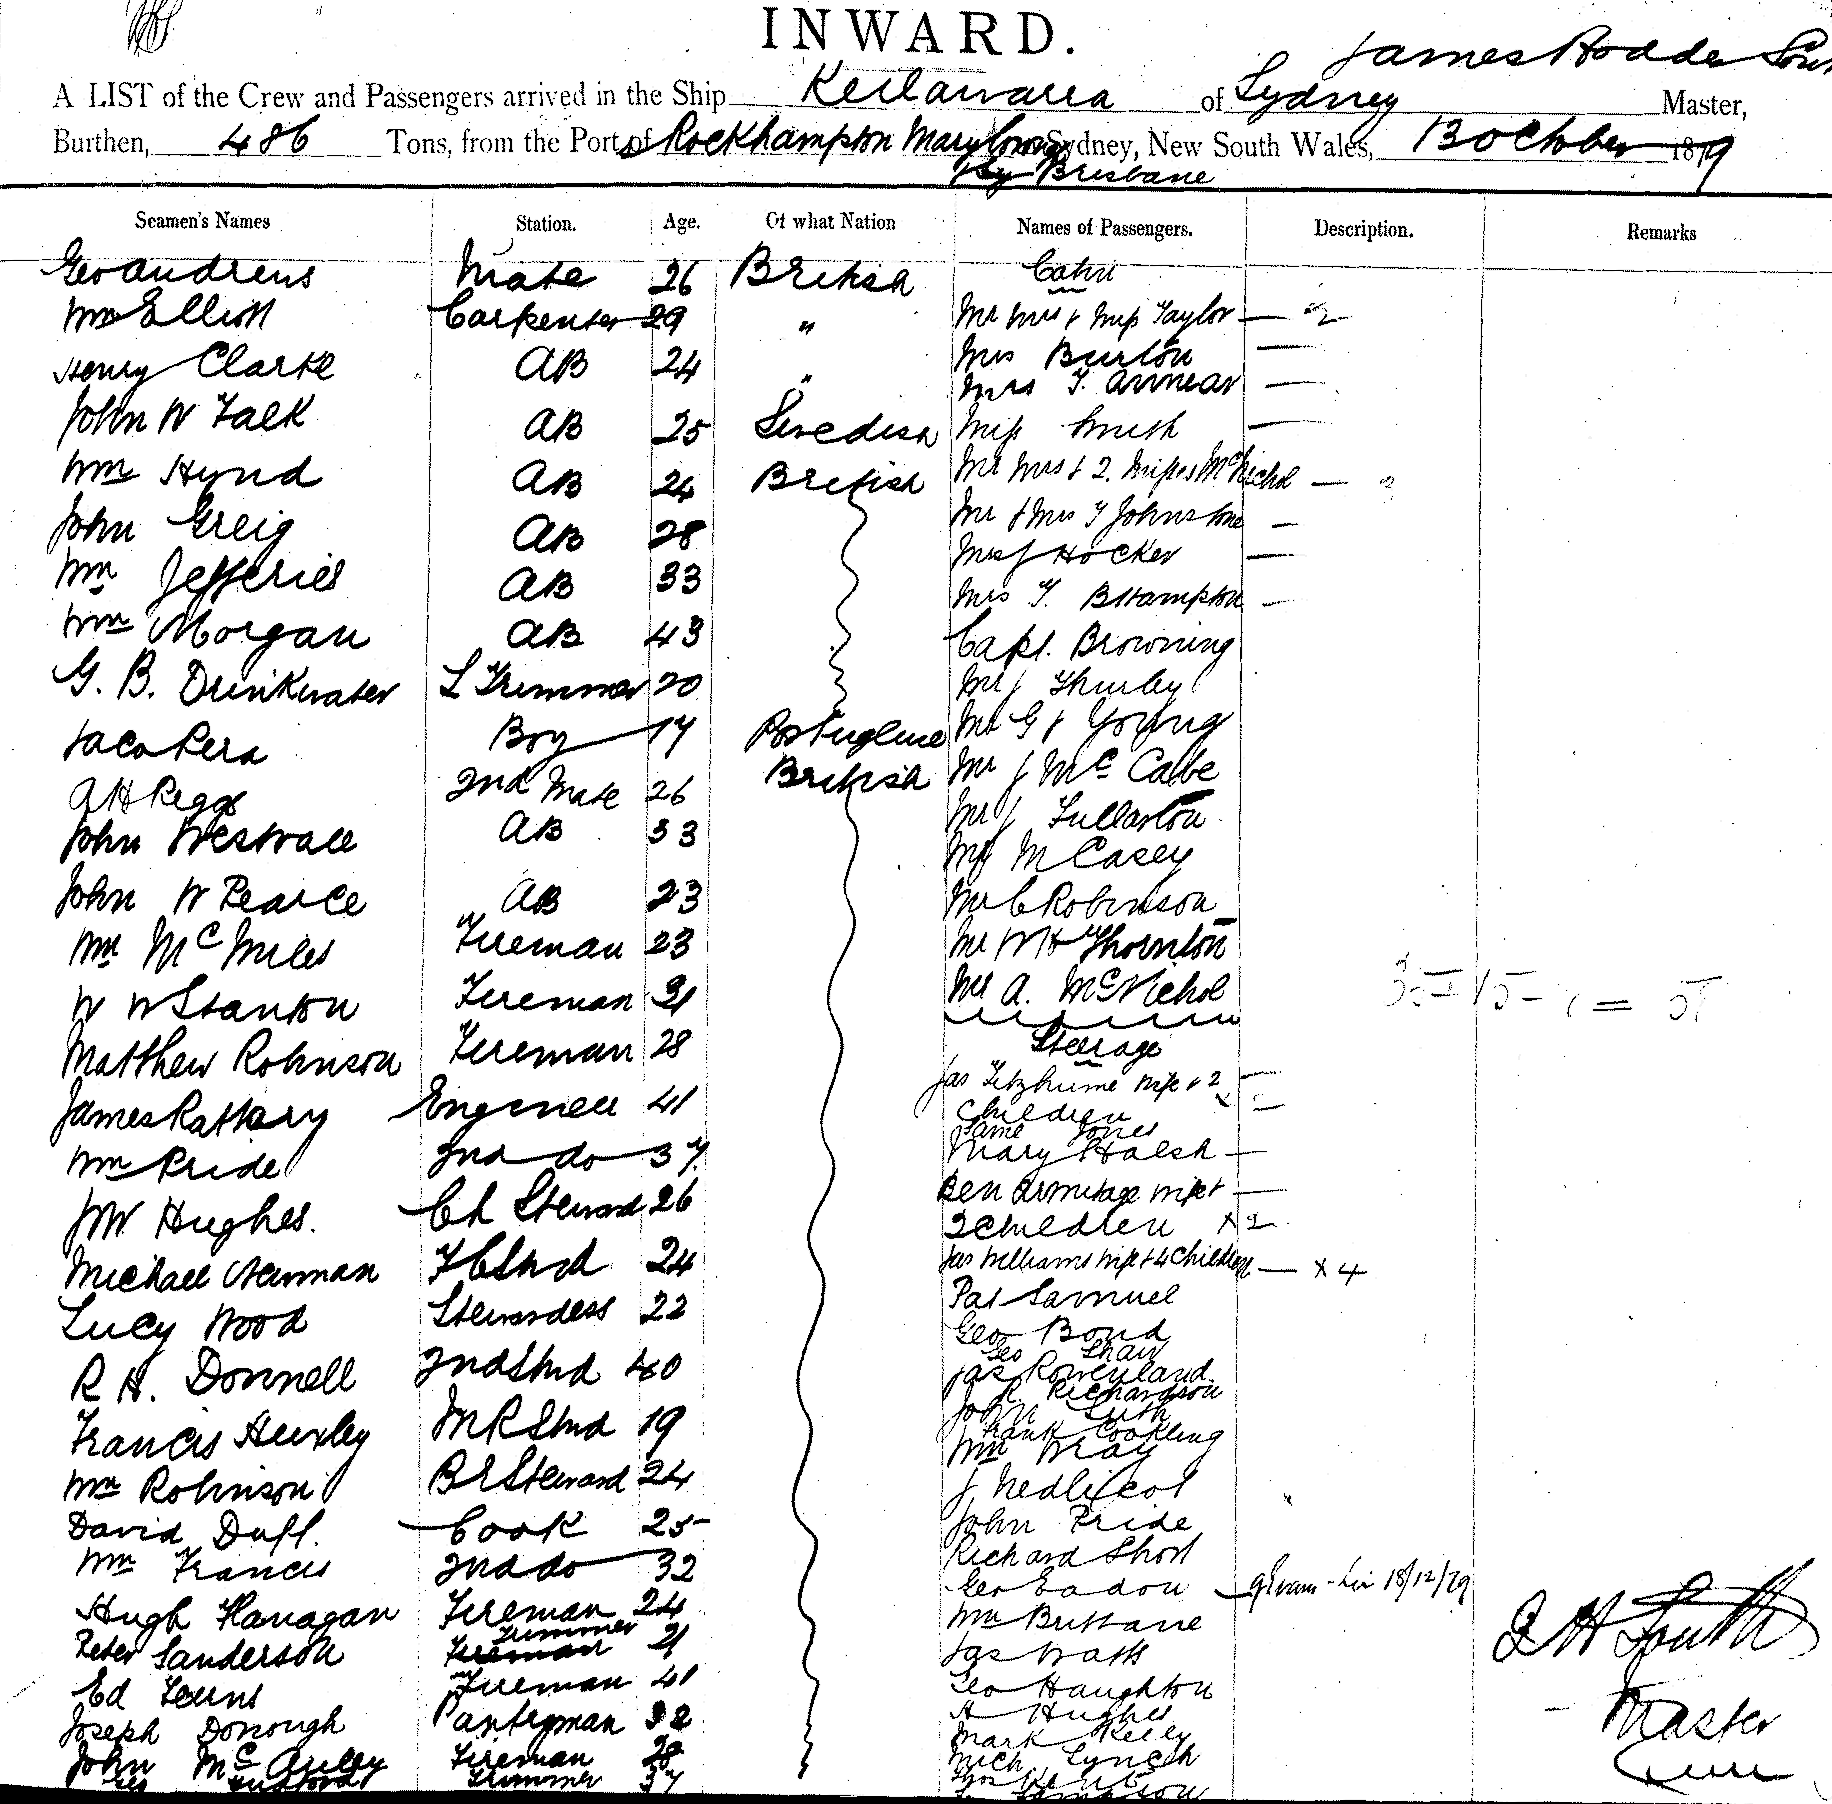 INWARD.
James Hodder South
A LIST of the Crew and Passengers arrived in the Ship Keilawarra of Sydney Master,
Burthen, 486 Tons, from the Port of Rockhampton Mary to Sydney, New South Wales, 13 October 1879
by Brisbane
Seamen's Names Station. Age. Of what Nation Names of Passengers. Description. Remarks
Geo Andrews Mate 26 British Cabin
Wm Elliott Carpenter 29 " Mr Mrs & Miss Taylor — 2
Henry Clarke AB 24 " Mrs Burton —
Mrs T. Annear —
John W Falk AB 25 Swedish Miss Smith —
Wm Hynd AB 24 British Mr Mrs & 2. Misses McNichol — 2
John Greig AB 28 Mr & Mrs T Johnstone —
Mrs J Hocker —
Wm Jefferies AB 33 Mrs T. B Hampton —
Wm Morgan AB 43 Capt. Browning
G. B. Drinkwater L Trimmer 20 Mr J Thurley
Boy 17 Portuguese Mr G J Young
A H Pegg 2nd Mate 26 British Mr J McCabe
Mr J Fullarton
John Westvall AB 33 M Casey
John W Pearce AB 23 Mr C Robinson
Wm McMiles Fireman 23 Mr W H Thornton
W W Stanton Fireman 31 Mr A. McNichol
Matthew Robinson Fireman 28 Steerage
Jas Fitzhume wife & 2 —
James Rattery Engineer 41 Children
Jane Jones
Wm Pride 2nd do 37 Mary Halsh —
J W Hughes. Ch Steward 26 Ben Armitage wife & —
2 Children x 2
Michael Newman F C Stwd 24 Jas Williams wife & 4 Children — x 4
Lucy Wood Stewardess 22 Pat Samuel
Geo Bond
Geo Shaw
R H. Donnell 2nd Stwd 40 Jas Rowenland
J R. Richardson
Francis Huxley M R Stwd 19 John Luth
Frank Cookling
Wm Wray
Wm Robinson B R Steward 24 J Medlicot
David Duff. Cook 25 John Pride
Wm Francis 2nd do 32 Richard Short
Geo Eadon 18/12/79
Hugh Flanagan Fireman 24 Wm Brittane
Peter Sanderson Trimmer Fireman 21 Jas Watts
Ed Fearns Fireman 41 Geo Haughton
Joseph Donough Pantryman 32 H Hughes
Mark Kelly
John McAuley Fireman 28 Mich Lynch
Trimmer 37
J H South
Master